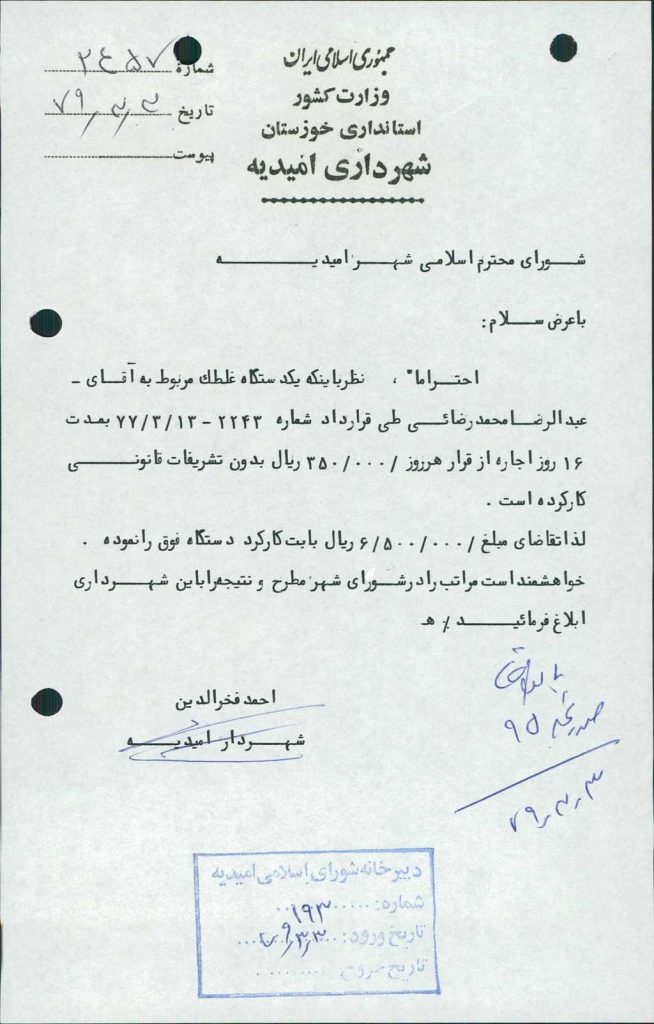 جمهوری اسلامی ایران
وزارت کشور
استانداری خوزستان
شهرداری امیدیه
شماره ۲۴۵۷
تاریخ ۷۹٫۳٫۳
پیوست
شورای محترم اسلامی شهر امیدیه
با عرض سلام:
احتراماً ، نظر باینکه یکدستگاه غلطک مربوط به آقای -
عبدالرضا محمدرضائی طی قرارداد شماره ۲۲۴۳-۷۷/۳/۱۳ بمدت
۱۶ روز اجاره از قرار هرروز /۳۵۰/۰۰۰ ریال بدون تشریفات قانونی
کارکرده است .
لذا تقاضای مبلغ /۶/۵۰۰/۰۰۰ ریال بابت کارکرد دستگاه فوق را نموده .
خواهشمند است مراتب را در شورای شهر مطرح و نتیجه را باین شهرداری
ابلاغ فرمائید ٪ ه
احمد فخرالدین
شهردار امیدیه
۹۵
۷۹٫۳٫۳
دبیرخانه شورای اسلامی امیدیه
شماره: ۱۹۳
تاریخ ورود: ۷۹٫۳٫۳
تاریخ خروج